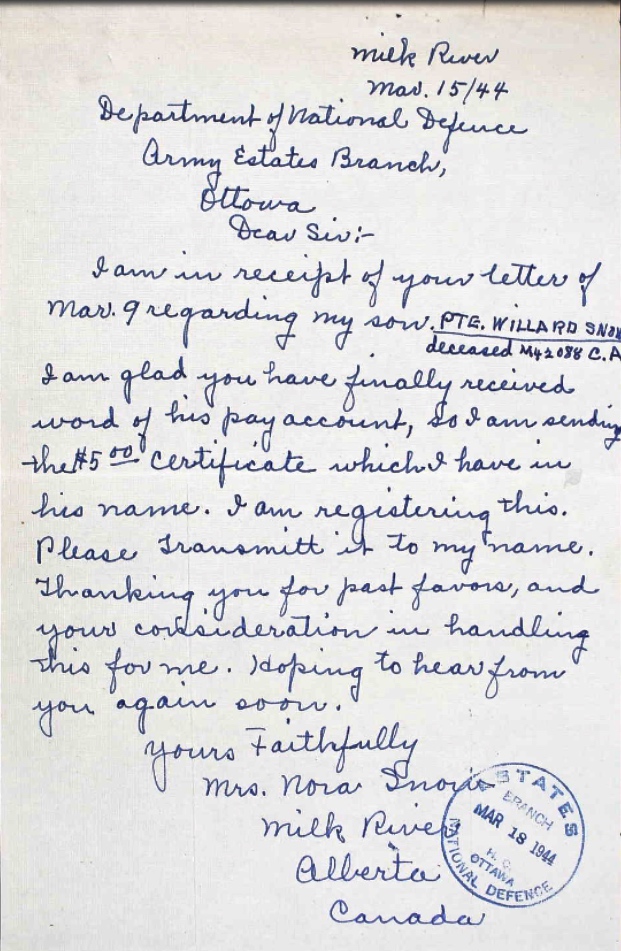 Milk River
Mar. 15/44
Department of National Defence
Army Estates Branch,
Ottowa
Dear Sir:-
I am in receipt of your letter of
Mar. 9 regarding my son. PTE. WILLARD SNOW
deceased M42088 C.A
I am glad you have finally received
word of his pay account, so I am sending
the $5 00 certificate which I have in
his name. I am registering this.
Please Transmitt it to my name.
Thanking you for past favors, and
your consideration in handling
this for me. Hoping to hear from
you again soon.
Yours Faithfully
Mrs. Nora Snow
Milk River
Alberta
Canada
ESTATES
BRANCH
MAR 18 1944
OTTAWA
NATIONAL DEFENCE